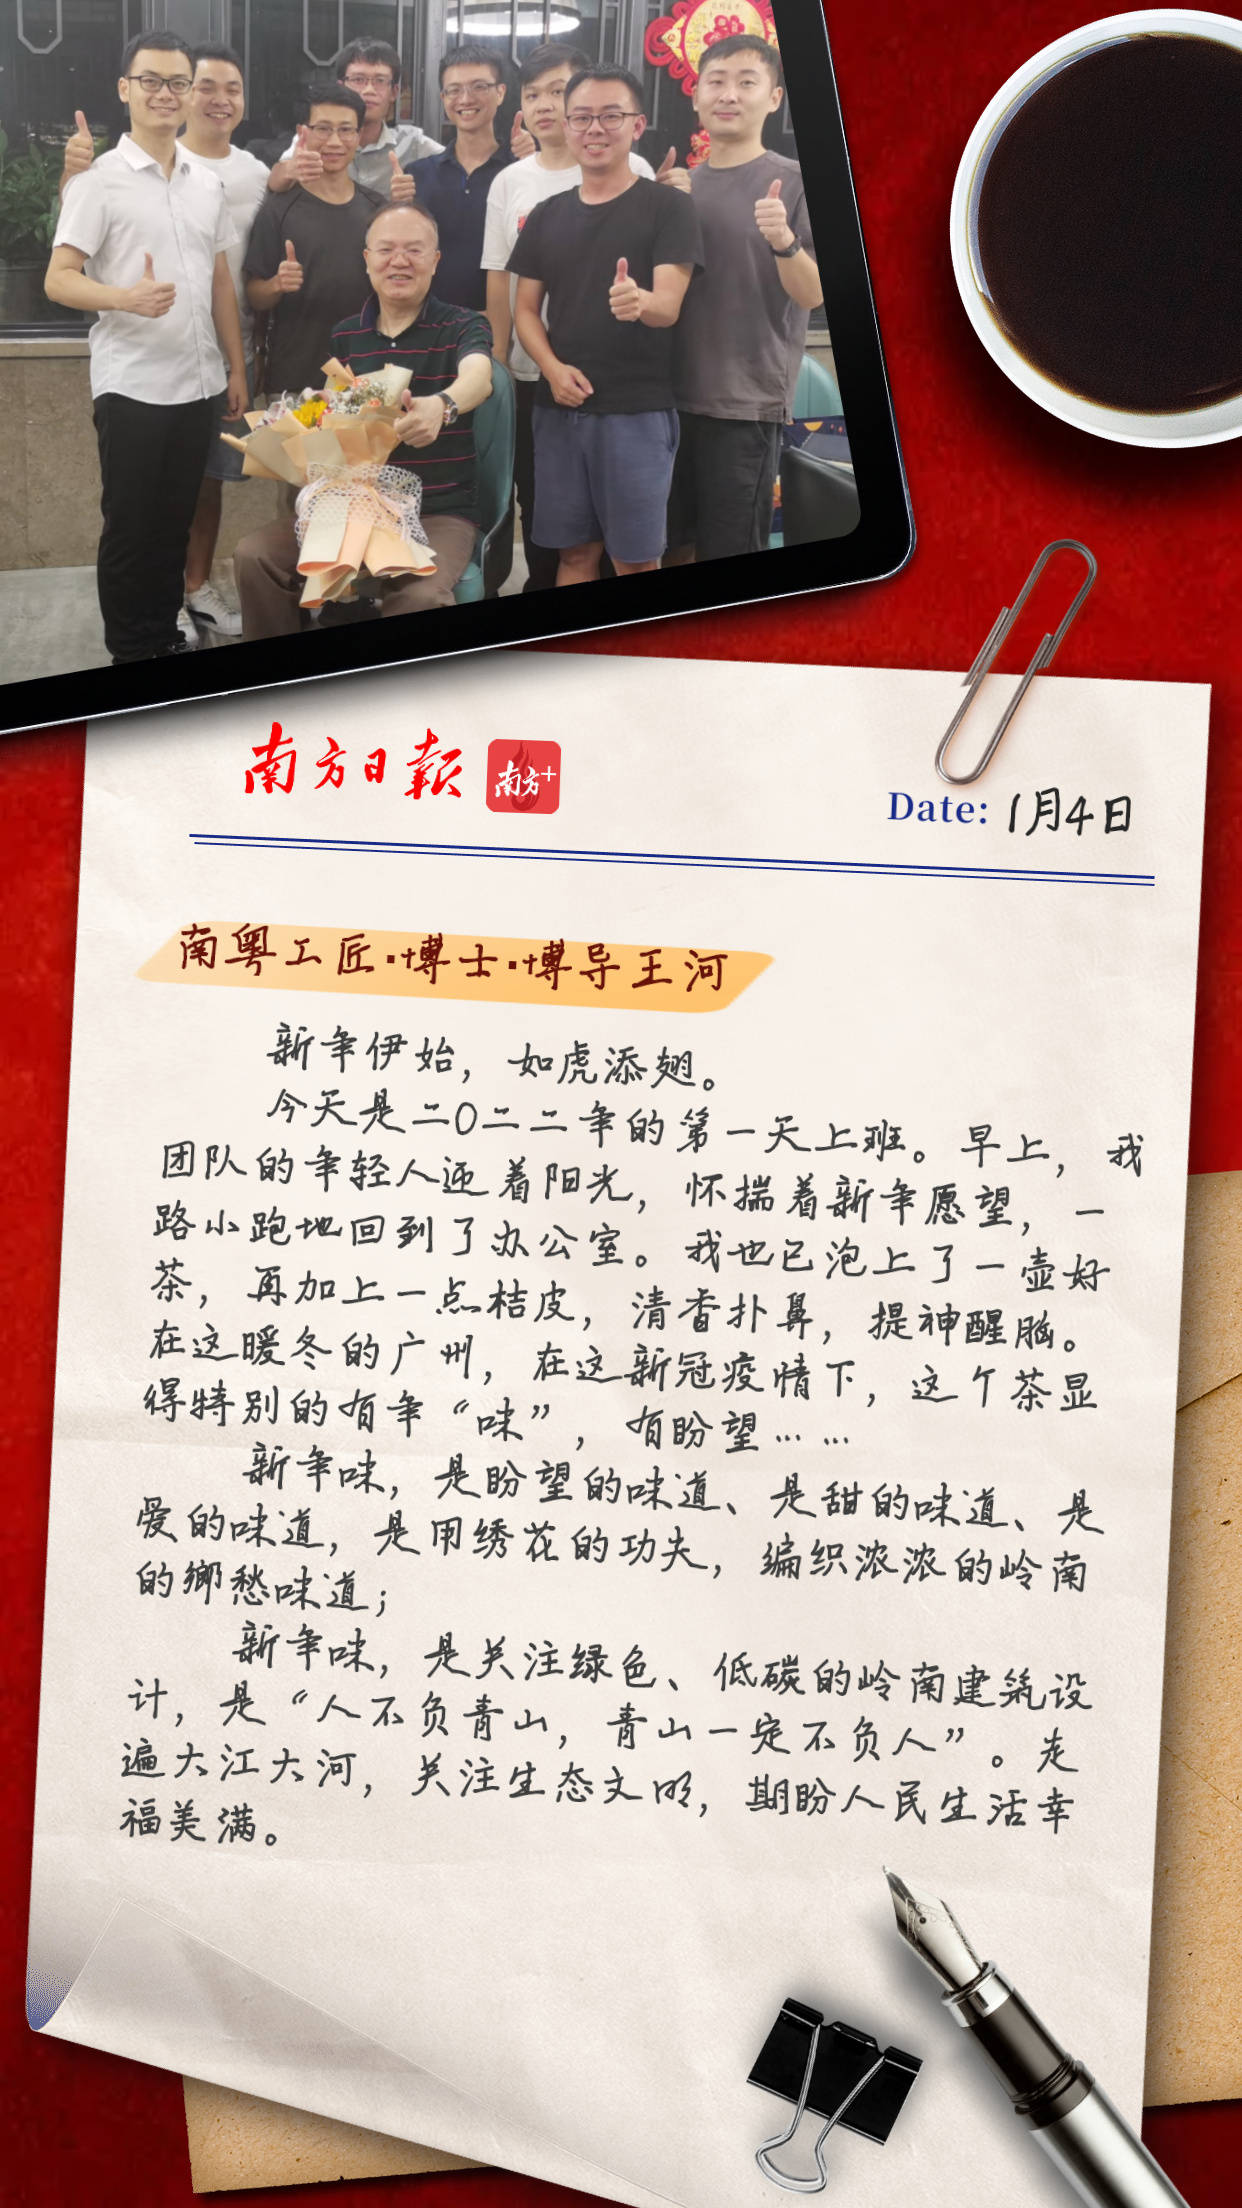 南方日报 南方+
Date: 1月4日
南粤工匠·博士·博导王河
新年伊始，如虎添翅。
今天是二〇二二年的第一天上班。早上，我
团队的年轻人迎着阳光，怀揣着新年愿望，一
路小跑地回到了办公室。我也已泡上了一壶好
茶，再加上一点桔皮，清香扑鼻，提神醒脑。
在这暖冬的广州，在这新冠疫情下，这个茶显
得特别的有年“味”，有盼望……
新年味，是盼望的味道、是甜的味道、是
爱的味道，是用绣花的功夫，编织浓浓的岭南
的鄉愁味道；
新年味，是关注绿色、低碳的岭南建筑设
计，是“人不负青山，青山一定不负人”。走
遍大江大河，关注生态文明，期盼人民生活幸
福美满。